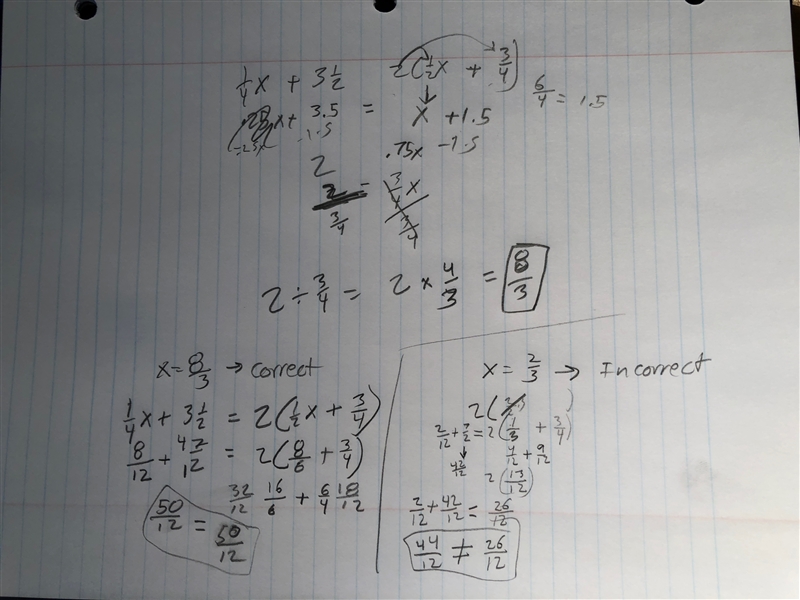 1/4x + 3 1/2 2(1/2x + 3/4)
x + 3.5 = x + 1.5 6/4 = 1.5
-.25x -1.5 .75x -1.5
2
2/(3/4) = (3/4x)/(3/4)
2 ÷ 3/4 = 2 × 4/3 = 8/3
x = 8/3 → correct
1/4x + 3 1/2 = 2(1/2x + 3/4)
8/12 + 42/12 = 2(8/6 + 3/4)
32/12 16/6 + 6/4 18/12
50/12 = 50/12
x = 2/3 → Incorrect
2( )
2/12 + 7/2 = 2(1/3 + 3/4)
42/12 4/12 + 9/12
2(13/12)
2/12 + 42/12 = 26/12
44/12 ≠ 26/12